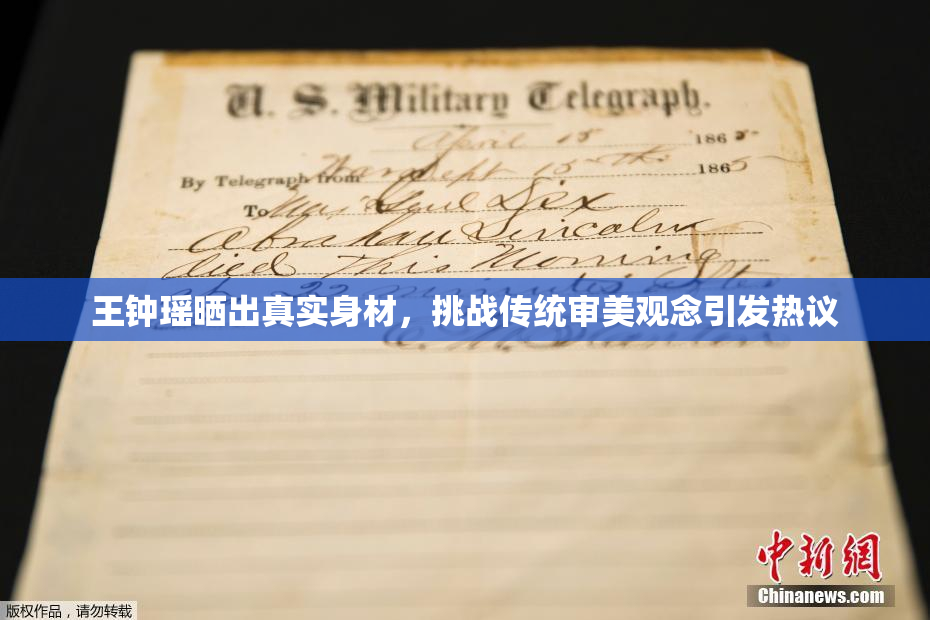 U. S. Military Telegraph.
April 15 1865
By Telegraph from War Dept 15th 1865
To Maj Genl Dix
Abraham Lincoln
died This Morning
at 22 minutes after
王钟瑶晒出真实身材，挑战传统审美观念引发热议
E. M. Stanton
中新网
Chinanews.com
版权作品，请勿转载